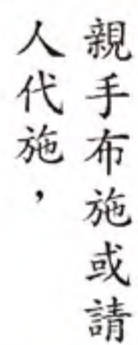 親手布施或請
人代施，